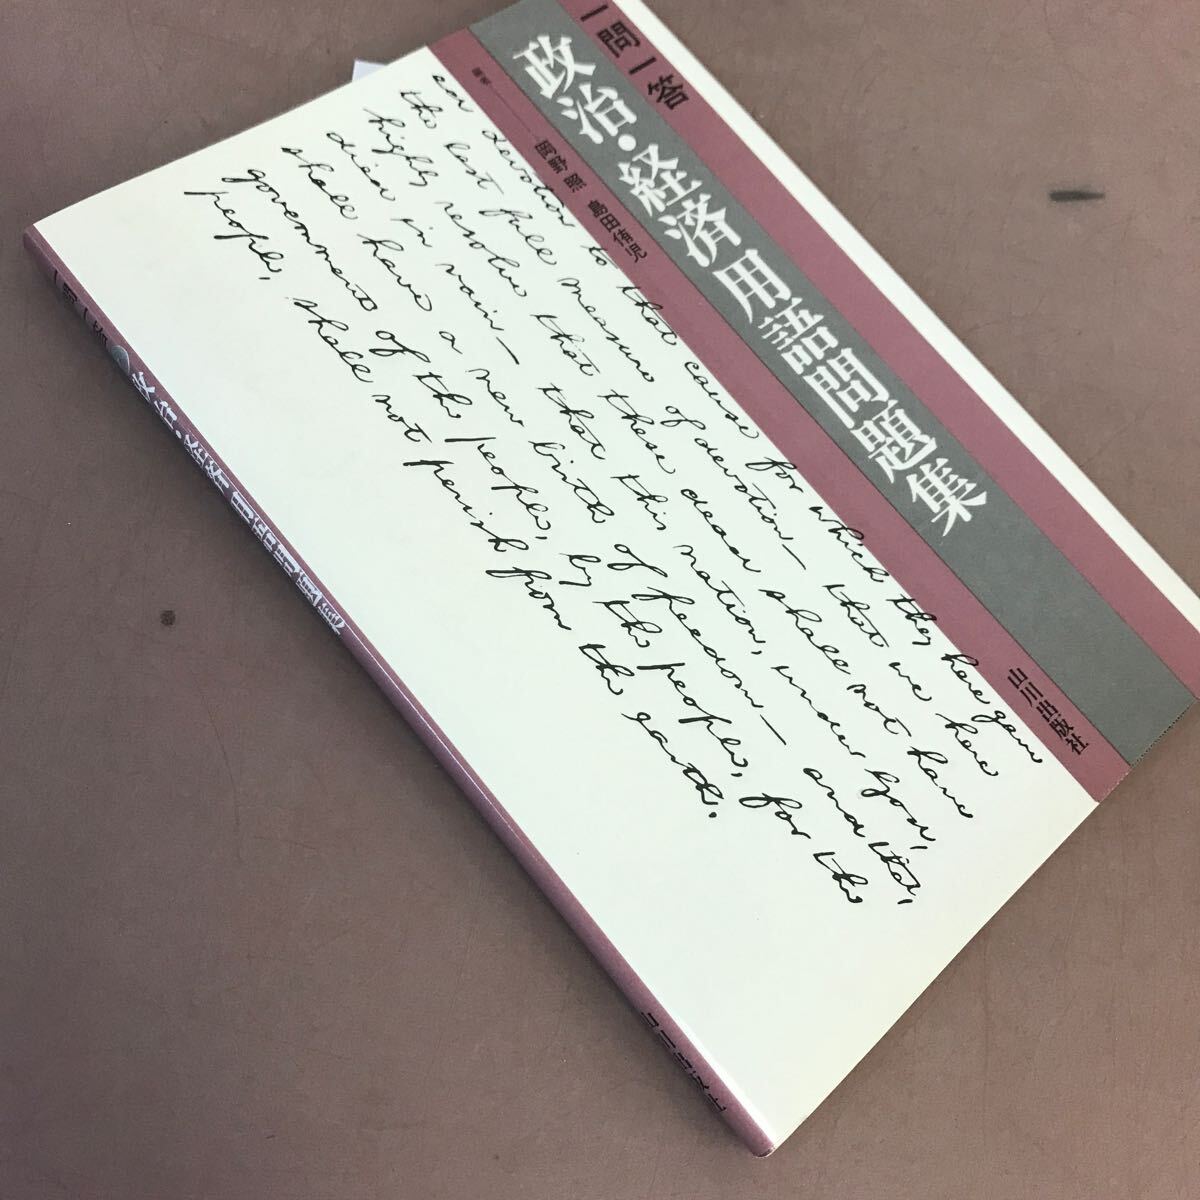 一問一答
政治・経済用語問題集
岡野 照 島田侑児
山川出版社
ed devotion to that cause for which they here gave
the last full measure of devotion— that we here
highly resolve that these dead shall not have
died in vain— that this nation, under God,
shall have a new birth of freedom— and that,
government of the people, by the people, for the
people, shall not perish from the earth.
一問一答 政治・経済用語問題集 山川出版社